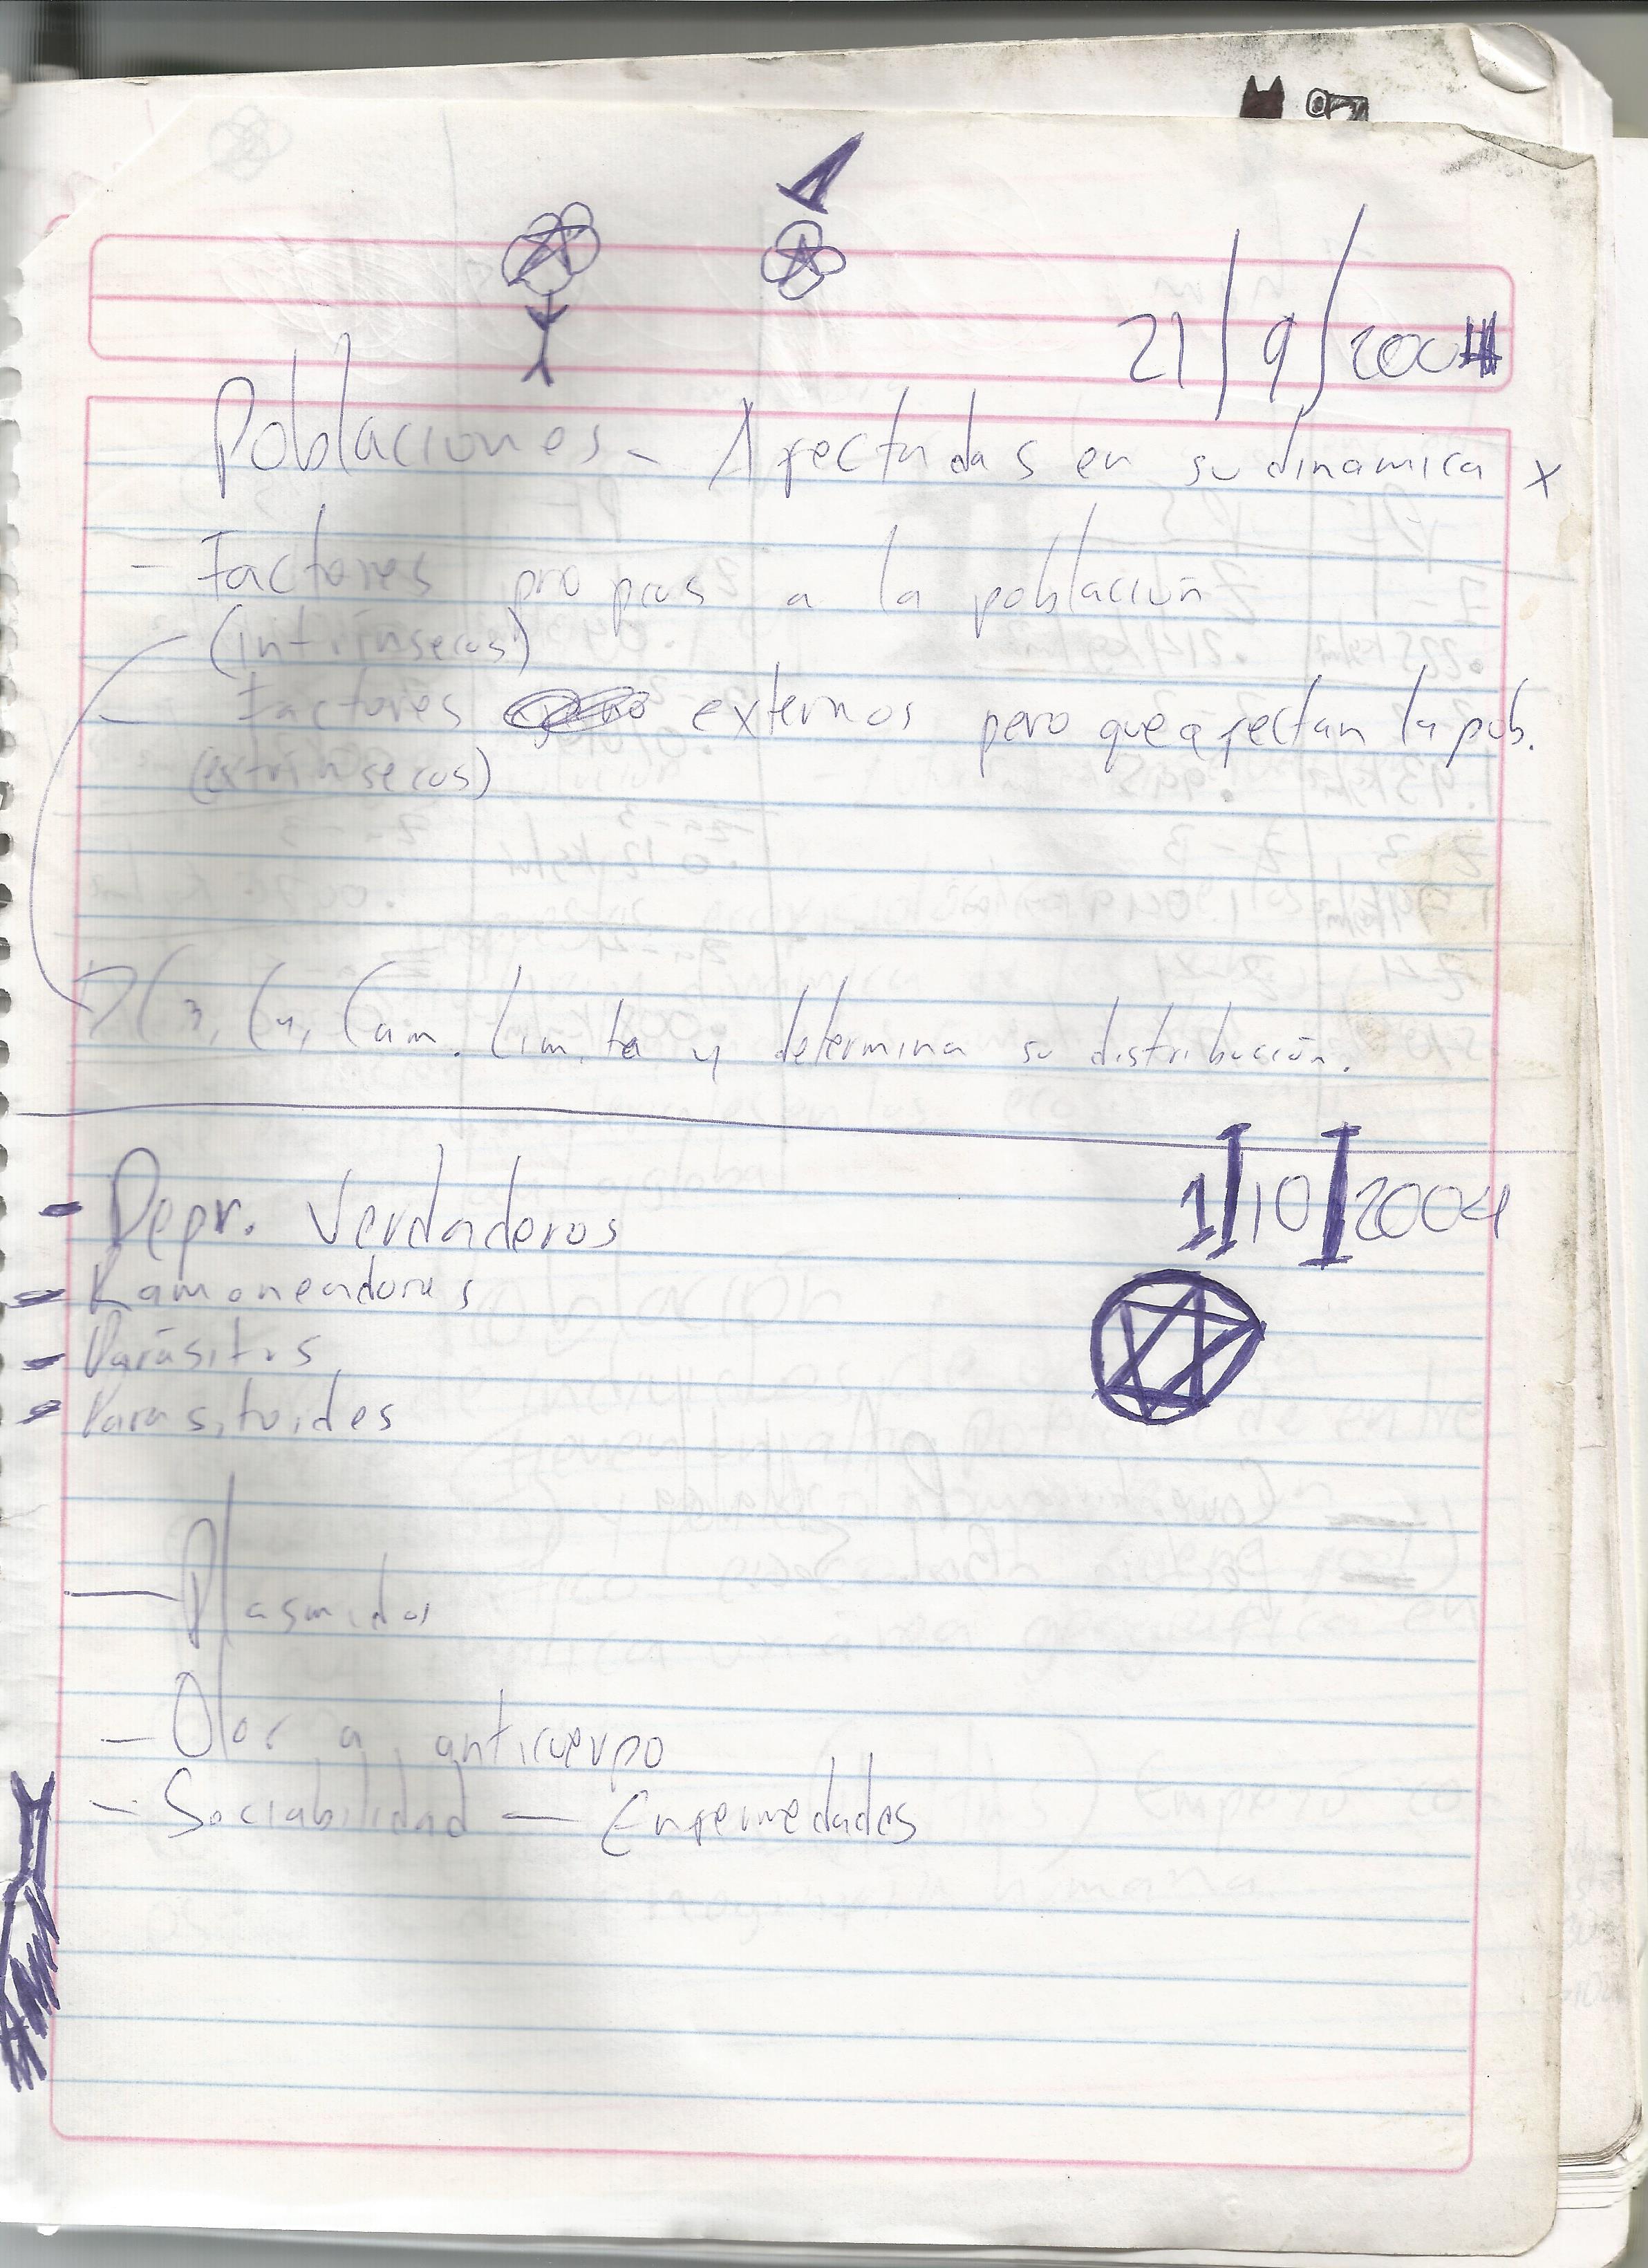 21/9/2004
Poblaciones - Afectadas en su dinamica x
- Factores propios a la población
(intrinsecos)
- Factores externos pero que afectan la pob.
(extrinsecos)
C3, C4, Cam. Limita y determina su distribución.
1/10/2004
- Depr. Verdaderos
- Ramoneadores
- Parásitos
- Parasitoides
- Plasmidos
- Olor a anticuerpo
- Sociabilidad - Enfermedades